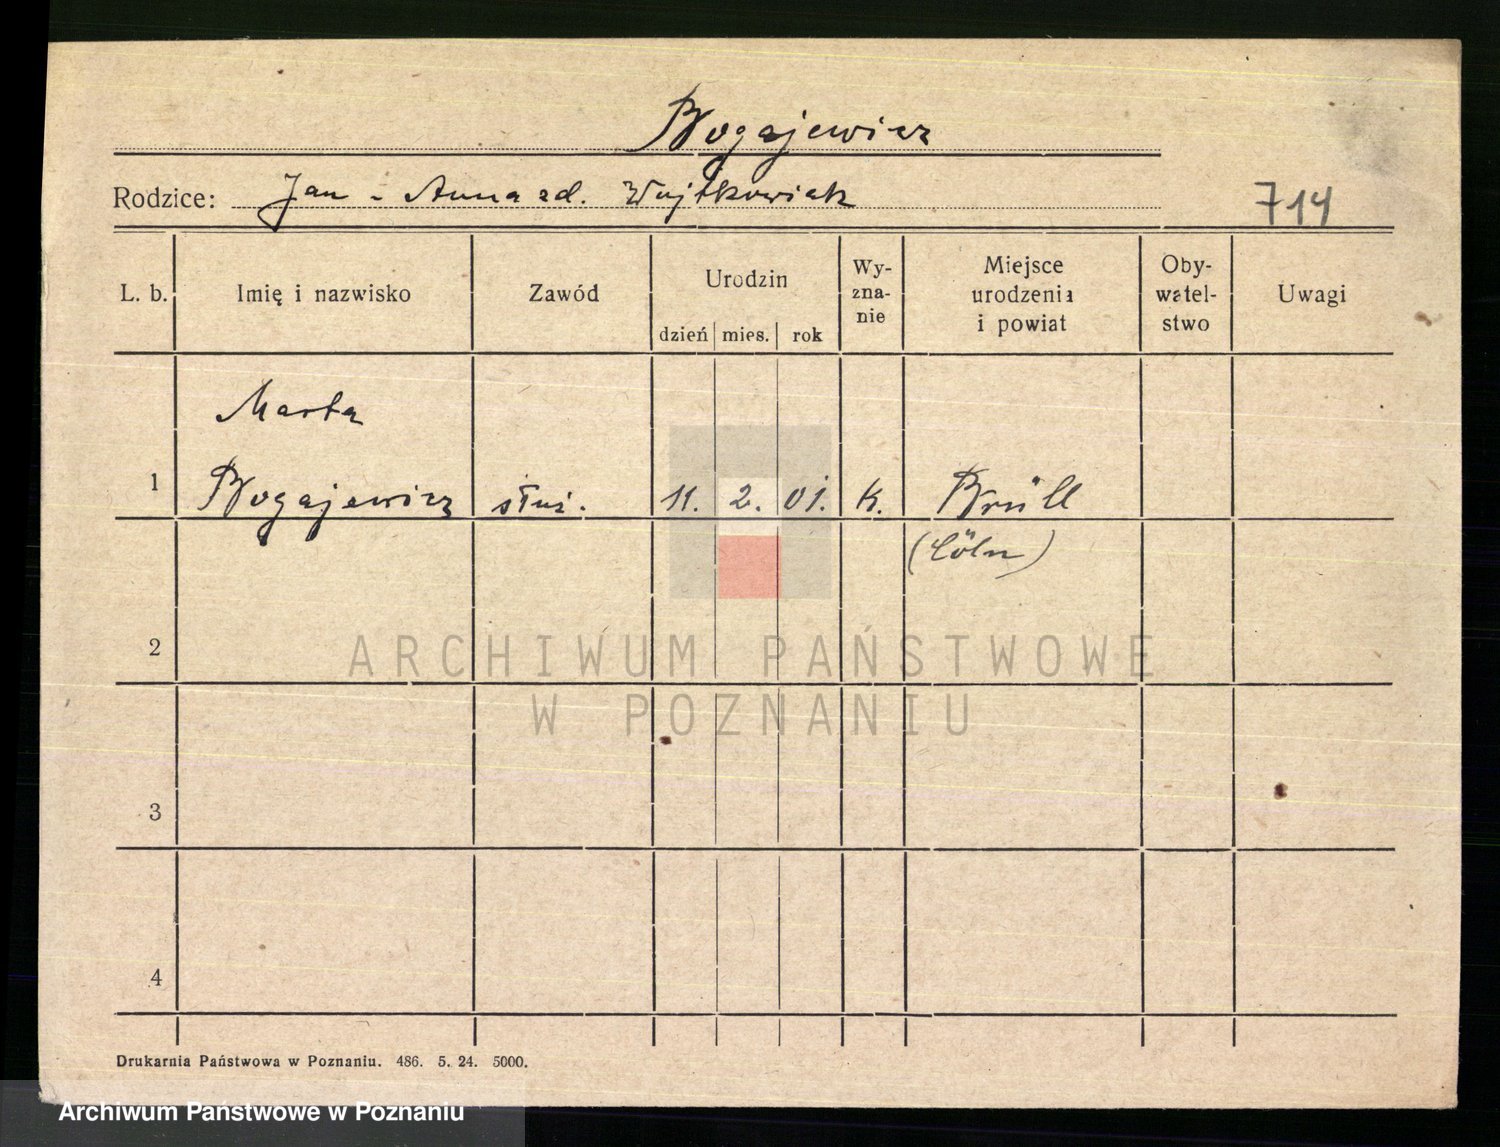 Bogajewicz
Rodzice: Jan - Anna zd. Wojtkowiak
714
L. b. Imię i nazwisko Zawód Urodzin dzień mies. rok Wy-zna-nie Miejsce urodzenia i powiat Oby-watel-stwo Uwagi
Marta
1 Bogajewicz służ. 11. 2. 01. k. Brüll
(Cöln)
2
3
4
ARCHIWUM PAŃSTWOWE
W POZNANIU
Drukarnia Państwowa w Poznaniu. 486. 5. 24. 5000.
Archiwum Państwowe w Poznaniu